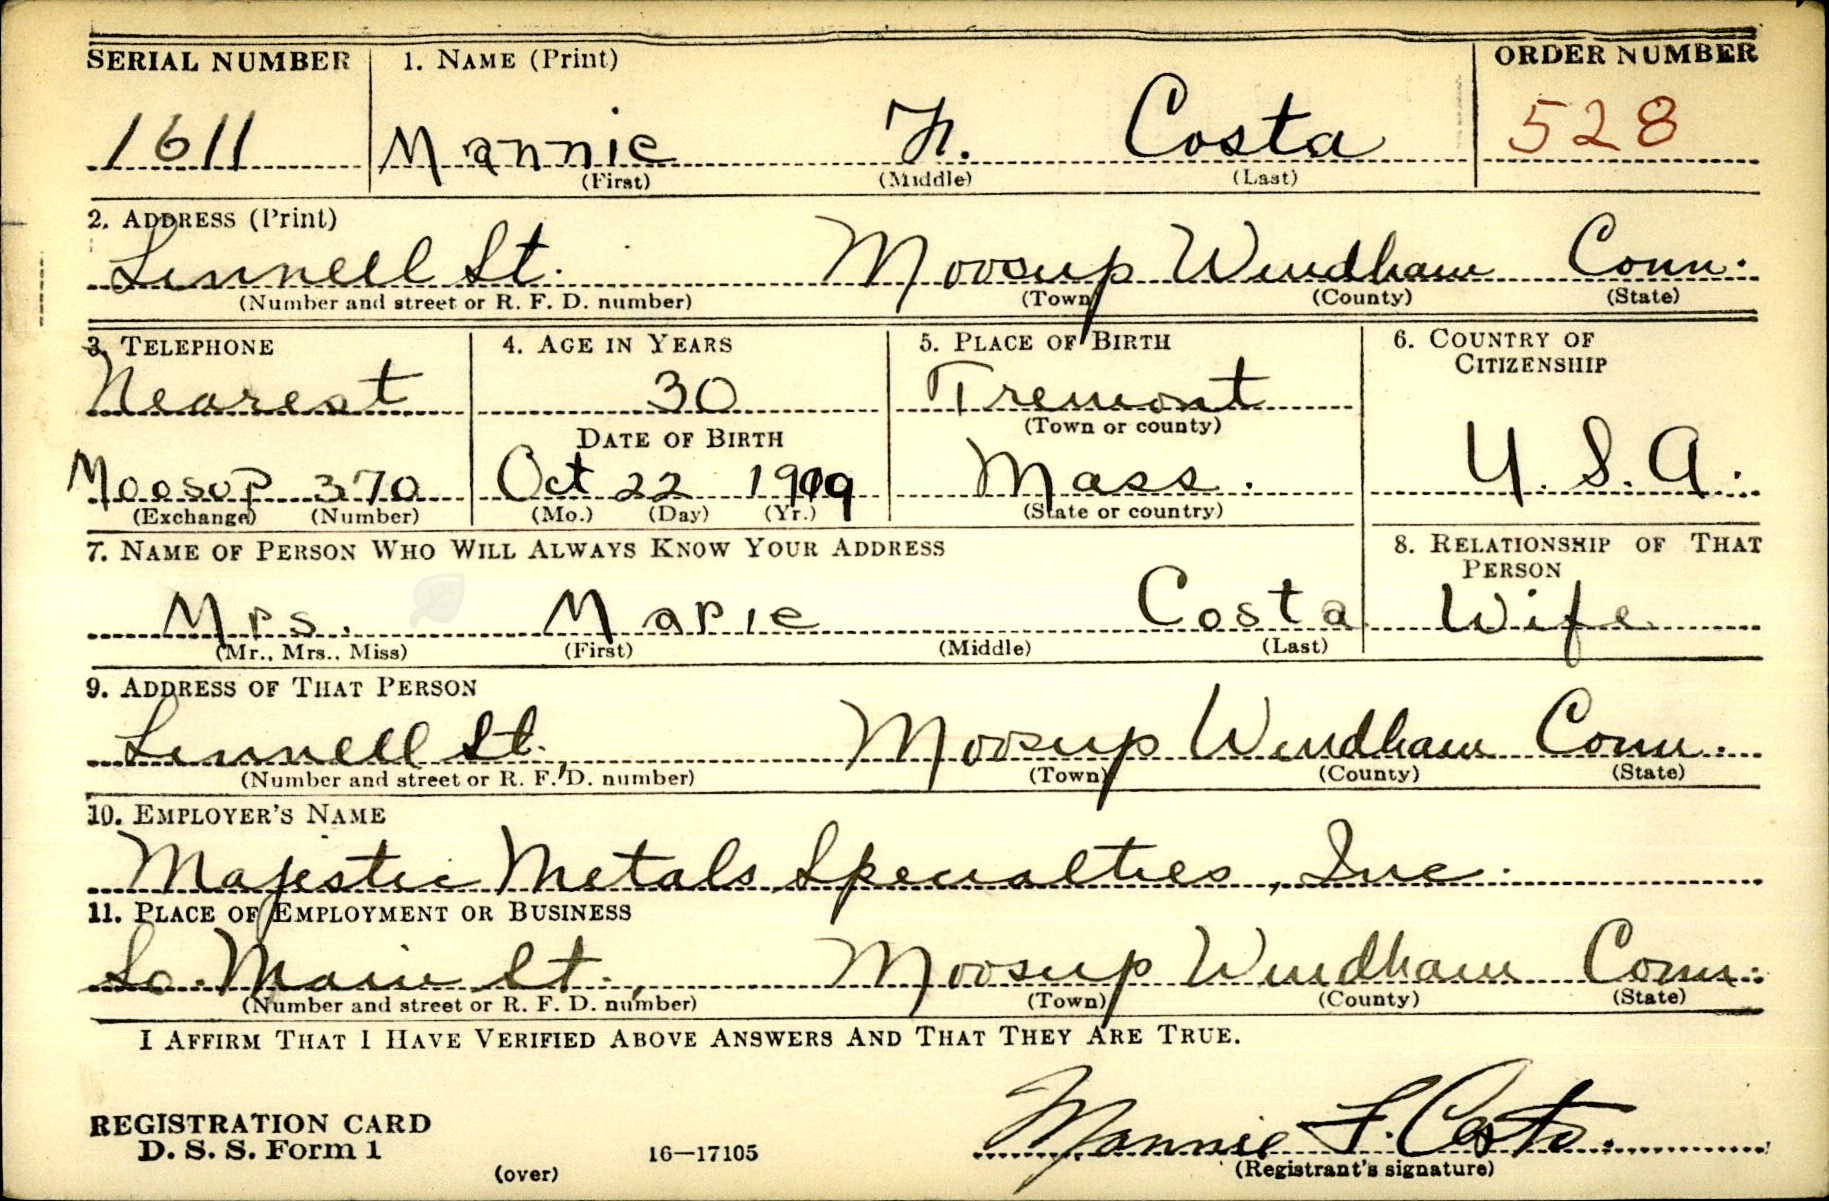 SERIAL NUMBER 1. NAME (Print) ORDER NUMBER
1611 Mannie F. Costa 528
(First) (Middle) (Last)
2. ADDRESS (Print)
Linnell St. Moosup Windham Conn.
(Number and street or R. F. D. number) (Town) (County) (State)
3. TELEPHONE 4. AGE IN YEARS 5. PLACE OF BIRTH 6. COUNTRY OF CITIZENSHIP
Nearest 30 Tremont
(Town or county)
DATE OF BIRTH
Moosup 370 Oct 22 1909 Mass. U. S. A.
(Exchange) (Number) (Mo.) (Day) (Yr.) (State or country)
7. NAME OF PERSON WHO WILL ALWAYS KNOW YOUR ADDRESS 8. RELATIONSHIP OF THAT PERSON
Mrs. Marie Costa Wife
(Mr., Mrs., Miss) (First) (Middle) (Last)
9. ADDRESS OF THAT PERSON
Linnell St., Moosup Windham Conn.
(Number and street or R. F. D. number) (Town) (County) (State)
10. EMPLOYER'S NAME
Majestic Metals Specialties, Inc.
11. PLACE OF EMPLOYMENT OR BUSINESS
So. Main St., Moosup Windham Conn.
(Number and street or R. F. D. number) (Town) (County) (State)
I AFFIRM THAT I HAVE VERIFIED ABOVE ANSWERS AND THAT THEY ARE TRUE.
REGISTRATION CARD
D. S. S. Form 1 16—17105 Mannie F. Costa.
(over) (Registrant's signature)